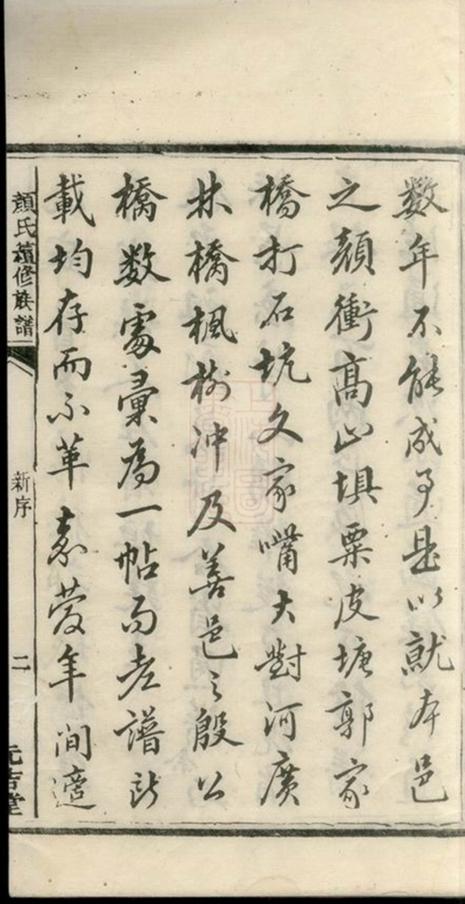 数年不能成事是以就本邑
之顏衝高山壩粟皮塘郭家
橋打石坑文家嘴大對河廣
林橋楓樹冲及善邑之殷公
橋数處彙為一帖而老譜所
載均存而不革嘉慶年間適
顏氏續修族譜
新序
二
元吉堂